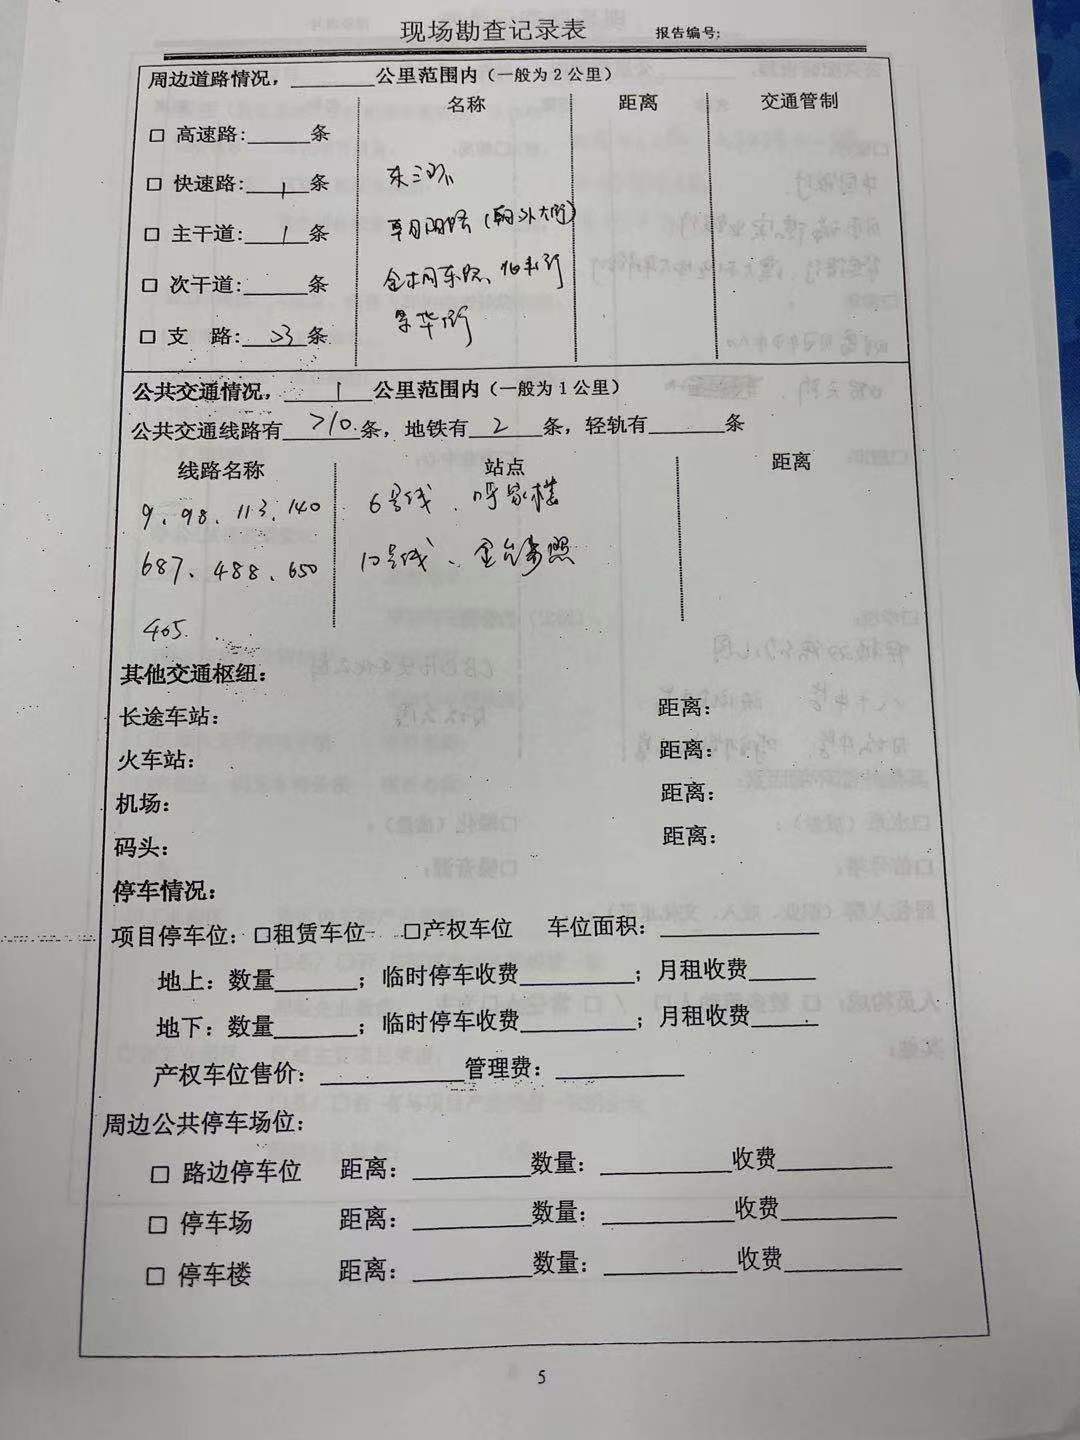 现场勘查记录表 报告编号:
周边道路情况，______公里范围内（一般为2公里）
名称 距离 交通管制
□ 高速路:______条
□ 快速路: 1 条 东三环
□ 主干道: 1 条 朝阳路（朝外大街）
□ 次干道:______条 金桐东路、
□ 支 路: >3 条 景华街
公共交通情况， 1 公里范围内（一般为1公里）
公共交通线路有 >10 条，地铁有 2 条，轻轨有______条
线路名称 站点 距离
9、98、113、140 6号线、呼家楼
687、488、650 10号线、金台夕照
405
其他交通枢纽：
长途车站： 距离：
火车站： 距离：
机场： 距离：
码头： 距离：
停车情况：
项目停车位：□租赁车位 □产权车位 车位面积：____________
地上：数量______；临时停车收费________；月租收费_____
地下：数量______；临时停车收费________；月租收费_____
产权车位售价：__________管理费：__________
周边公共停车场位：
□ 路边停车位 距离：________数量：__________收费________
□ 停车场 距离：________数量：__________收费________
□ 停车楼 距离：________数量：__________收费________
5